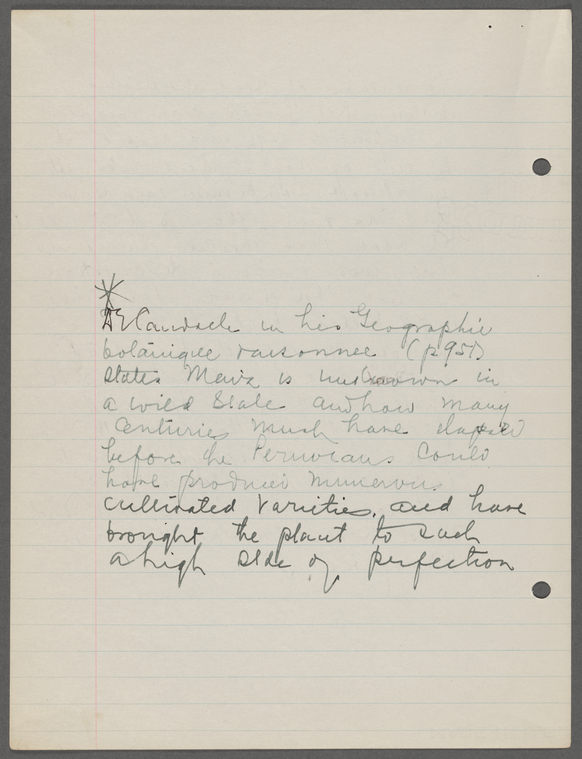 *
DeCandach in his Geographic
botanique raisonnee (p 951)
states Maiz is unknown in
a wild State and how many
Centuries must have elapsed
before the Peruvians Could
have produced numerous
cultivated varieties, and have
brought the plant to such
a high state of perfection